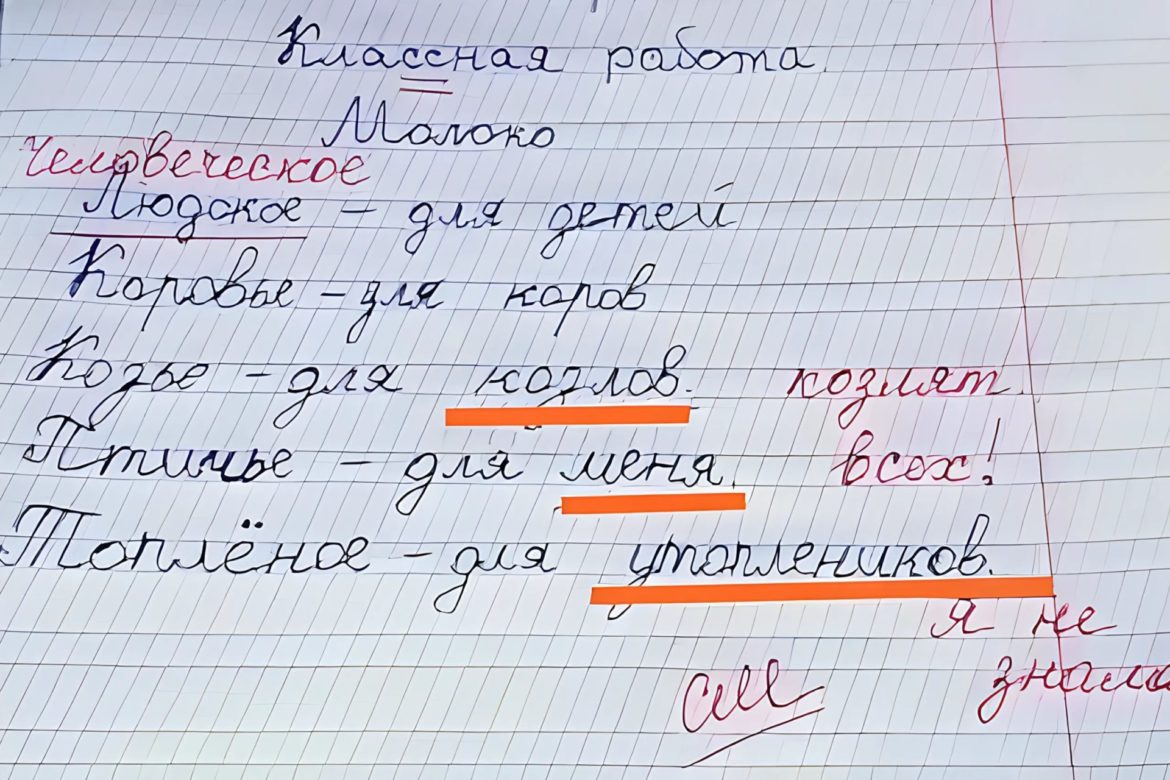 Классная работа.
Молоко
Человеческое
Людское – для детей
Коровье – для коров
Козье – для козлов. козлят.
Птичье – для меня. всех!
Топлёное – для утоплеников.
я не
знала
см